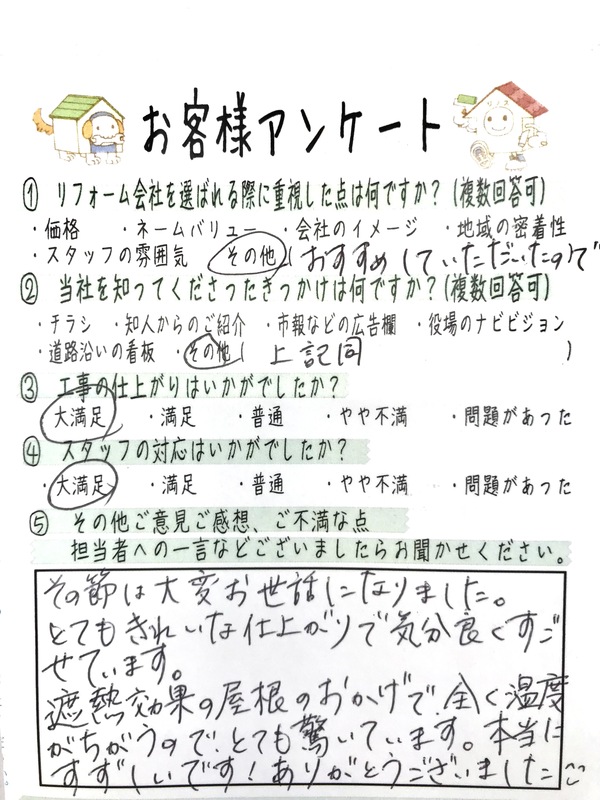 お客様アンケート
① リフォーム会社を選ばれる際に重視した点は何ですか？(複数回答可)
・価格 ・ネームバリュー ・会社のイメージ ・地域の密着性
・スタッフの雰囲気 その他( おすすめしていただいたので
② 当社を知ってくださったきっかけは何ですか？(複数回答可)
・チラシ ・知人からのご紹介 ・市報などの広告欄 ・役場のナビビジョン
・道路沿いの看板 ・その他( 上記同 )
③ 工事の仕上がりはいかがでしたか？
大満足 ・満足 ・普通 ・やや不満 ・問題があった
④ スタッフの対応はいかがでしたか？
・大満足 ・満足 ・普通 ・やや不満 ・問題があった
⑤ その他ご意見ご感想、ご不満な点
担当者への一言などございましたらお聞かせください。
その節は大変お世話になりました。
とてもきれいな仕上がりで気分良くすご
せています。
遮熱効果の屋根のおかげで全く温度
がちがうので、とても驚いています。本当に
すずしいです！ありがとうございました